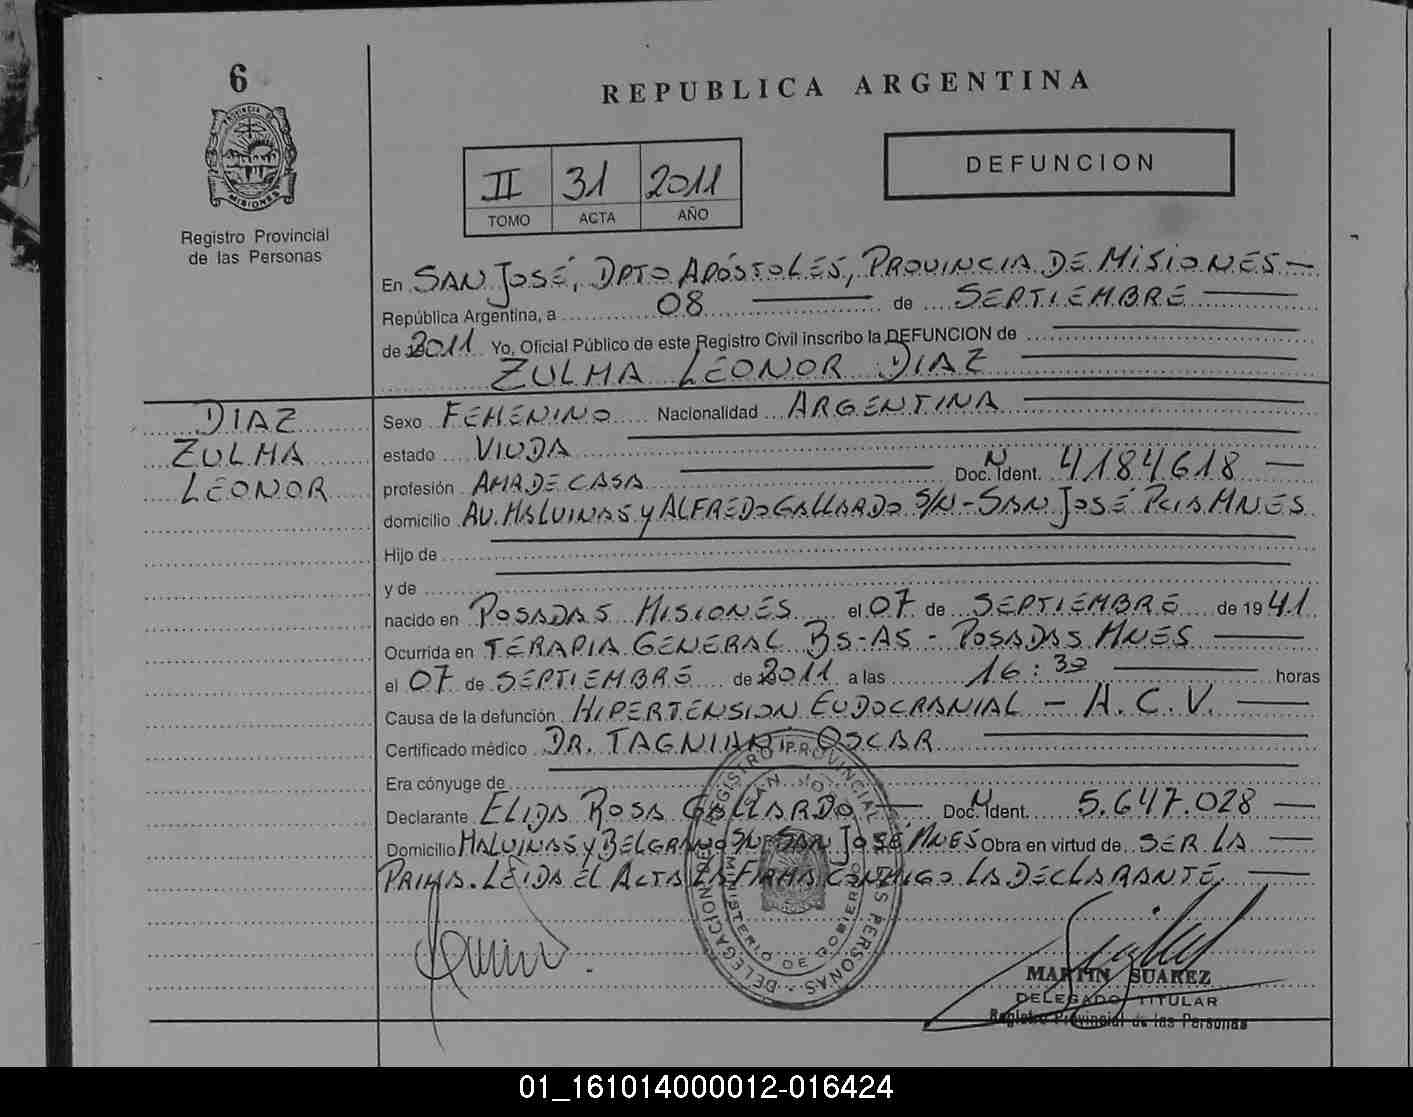 6
REPUBLICA ARGENTINA
PROVINCIA DE
MISIONES
Registro Provincial
de las Personas
II 31 2011
TOMO ACTA AÑO
DEFUNCION
En SAN JOSÉ, DPTO APÓSTOLES, PROVINCIA DE MISIONES —
República Argentina, a 08 — de SEPTIEMBRE —
de 2011 Yo, Oficial Público de este Registro Civil inscribo la DEFUNCION de —
ZULMA LEONOR DIAZ —
DIAZ
ZULMA
LEONOR
Sexo FEMENINO Nacionalidad ARGENTINA —
estado VIUDA —
profesión AMA DE CASA — Doc. N Ident. 4184618 —
domicilio AV. MALVINAS y ALFREDO GALLARDO S/N - SAN JOSÉ PCIA MNES
Hijo de —
y de —
nacido en POSADAS MISIONES el 07 de SEPTIEMBRE de 1941
Ocurrida en TERAPIA GENERAL BS-AS - POSADAS MNES —
el 07 de SEPTIEMBRE de 2011 a las 16:30 — horas
Causa de la defunción HIPERTENSION EUDOCRANIAL - A.C.V. —
Certificado médico DR. OSCAR —
Era cónyuge de —
Declarante ELIDA ROSA GALLARDO — Doc. N Ident. 5.647.028 —
Domicilio MALVINAS y BELGRANO S/N SAN JOSÉ MNES Obra en virtud de SER LA —
PRIMA. LEIDA EL ACTA LA FIRMA CONMIGO LA DECLARANTE. —
DELEGACION DEL REGISTRO PROVINCIAL DE LAS PERSONAS -
SAN JOSE
MINISTERIO DE GOBIERNO
MARTIN SUAREZ
DELEGADO TITULAR
Registro Provincial de las Personas
01_161014000012-016424